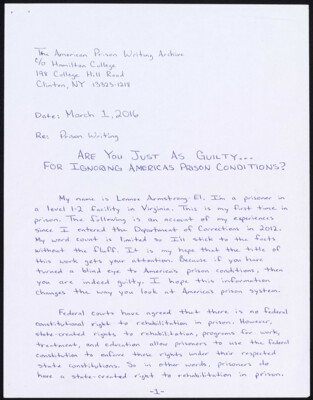 The American Prison Writing Archive
c/o Hamilton College
198 College Hill Road
Clinton, NY 13323-1218
Date: March 1, 2016
Re: Prison Writing
ARE YOU JUST AS GUILTY...
FOR IGNORING AMERICAS PRISON CONDITIONS?
My name is Lenner Armstrong-El. I'm a prisoner in
a level 1-2 facility in Virginia. This is my first time in
prison. The following is an account of my experiences
since I entered the Department of Corrections in 2012.
My word count is limited so I'll stick to the facts
without the fluff. It is my hope that the title of
this work gets your attention. Because if you have
turned a blind eye to America's prison conditions, then
you are indeed guilty. I hope this information
changes the way you look at America's prison system.
Federal courts have agreed that there is no federal
constitutional right to rehabilitation in prison. However,
state-created rights to rehabilitation, programs for work,
treatment, and education allow prisoners to use the federal
constitution to enforce these rights under their respected
state constitutions. So in other words, prisoners do
have a state-created right to rehabilitation in prison.
-1-